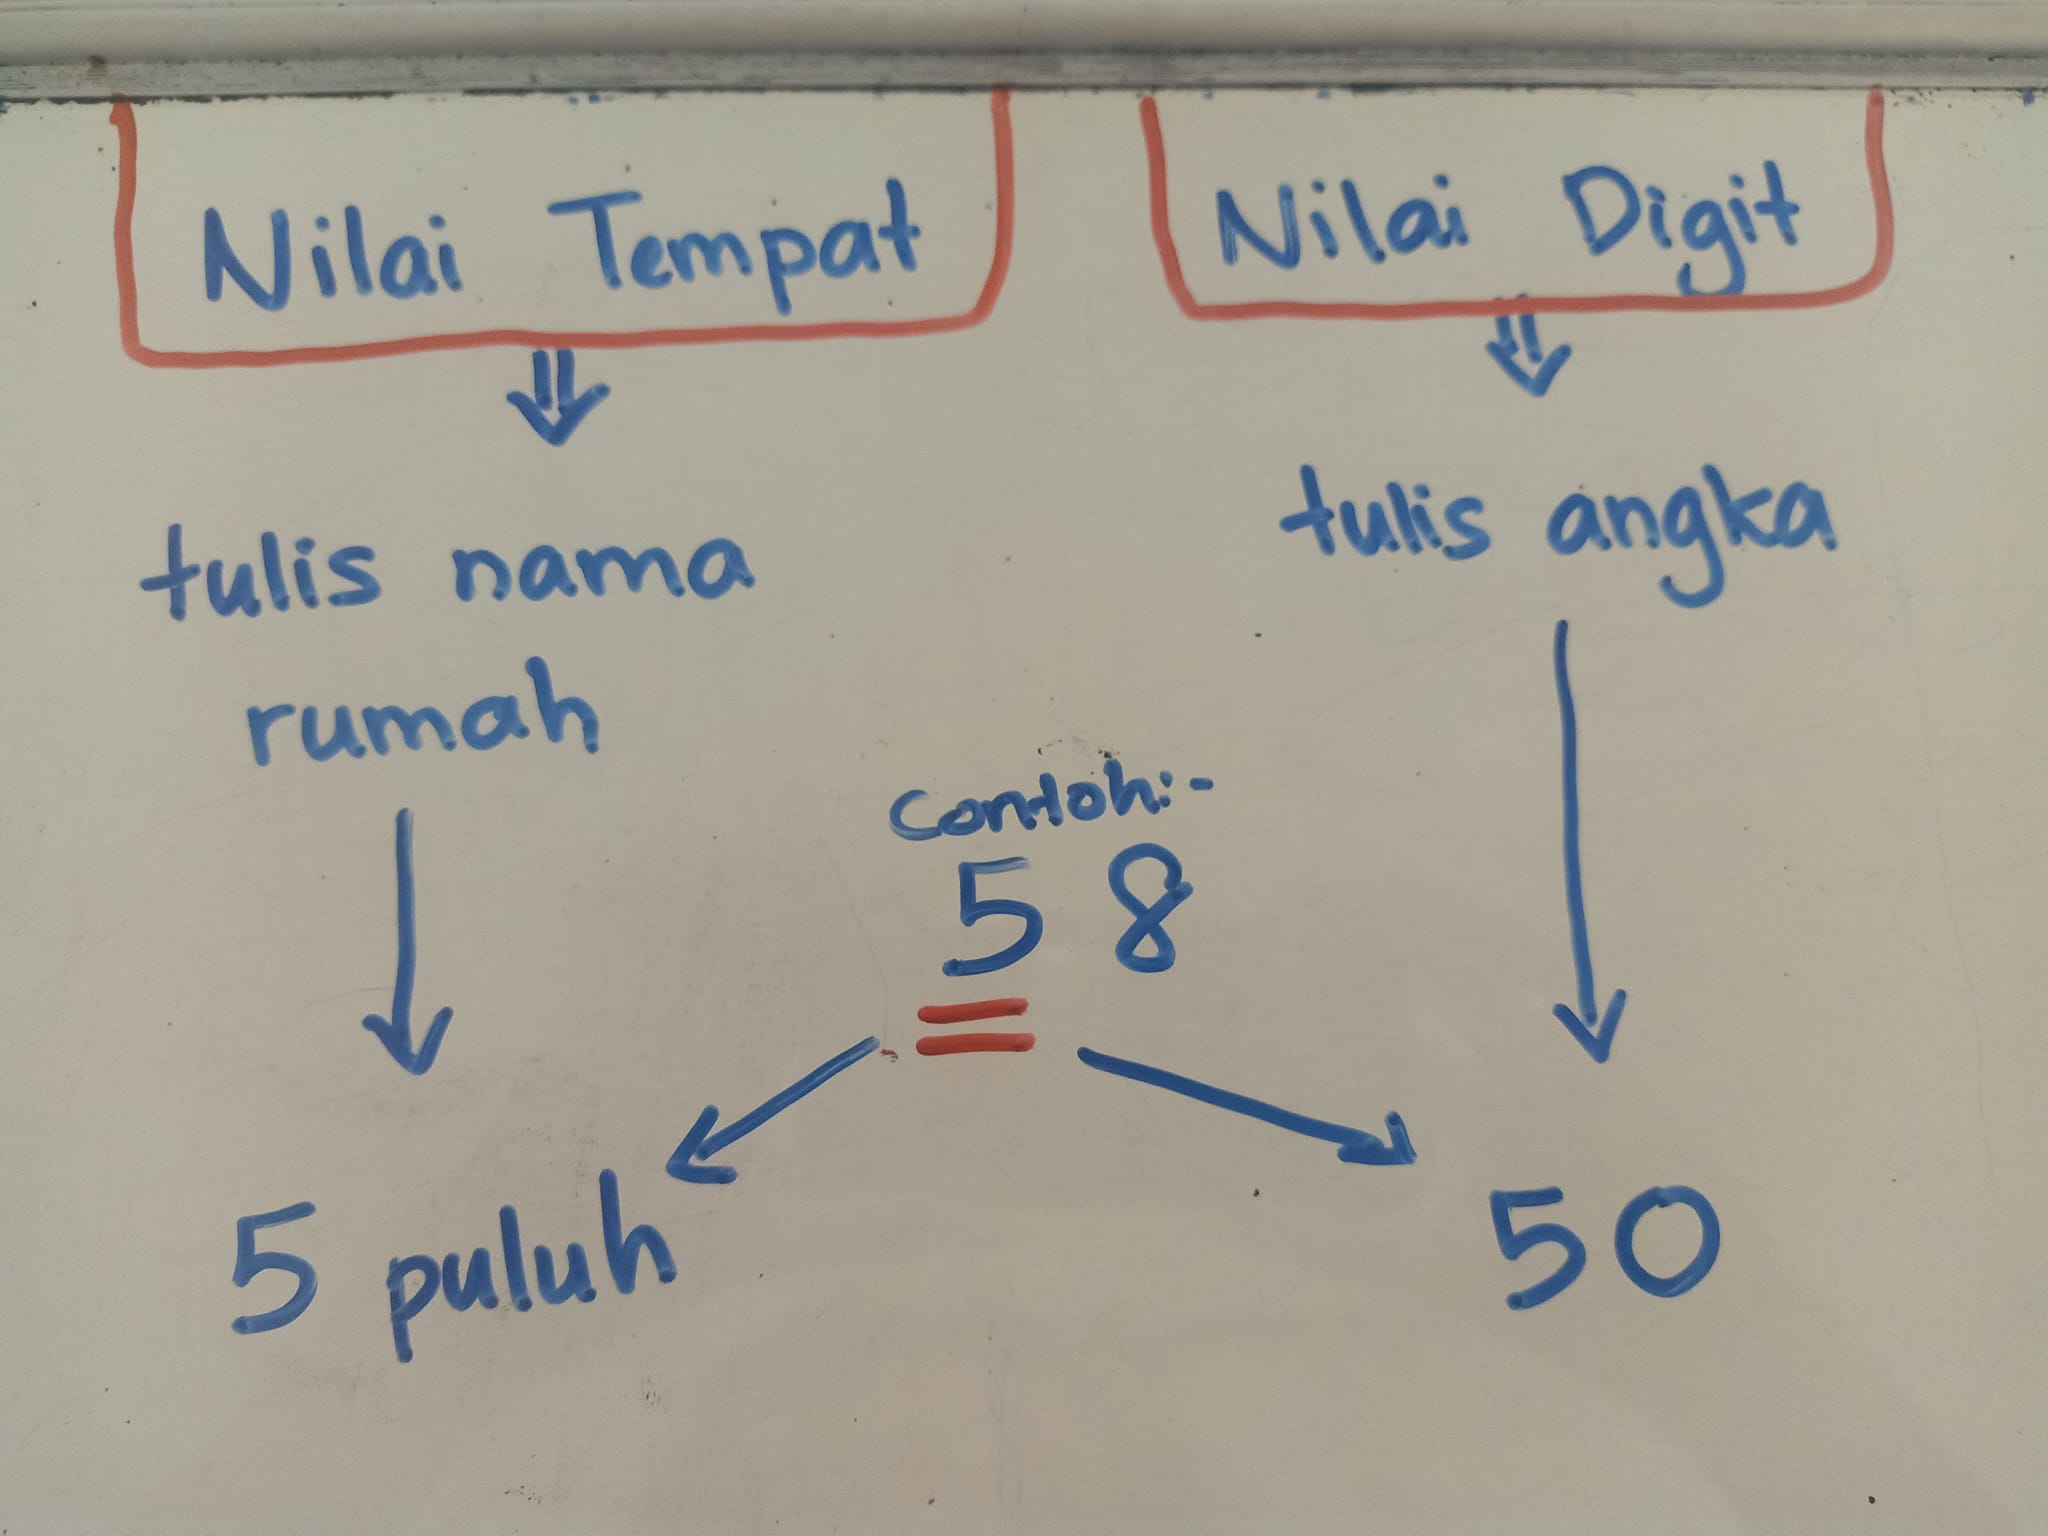 Nilai Tempat
tulis nama
rumah
Nilai Digit
tulis angka
Contoh:-
58
5 puluh
50